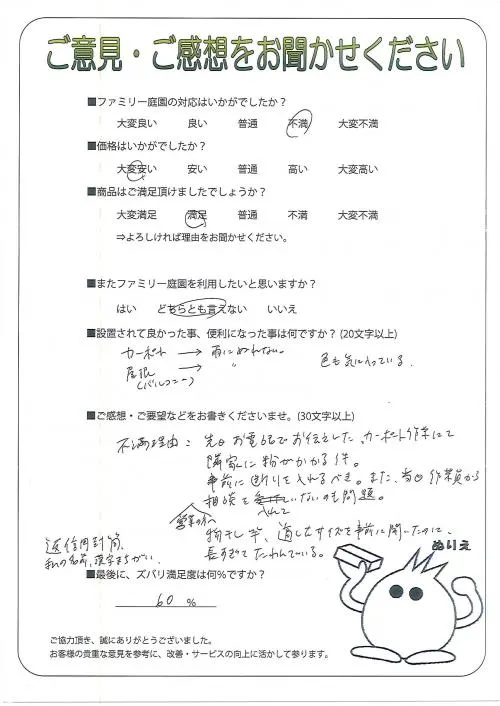 ご意見・ご感想をお聞かせください
■ファミリー庭園の対応はいかがでしたか？
大変良い 良い 普通 不満 大変不満
■価格はいかがでしたか？
大変安い 安い 普通 高い 大変高い
■商品はご満足頂けましたでしょうか？
大変満足 満足 普通 不満 大変不満
⇒よろしければ理由をお聞かせください。
■またファミリー庭園を利用したいと思いますか？
はい どちらとも言えない いいえ
■設置されて良かった事、便利になった事は何ですか？(20文字以上)
カーポート → 雨にぬれない。
屋根 → 〃 色も気に入っている.
(バルコニー)
■ご感想・ご要望などをお書きくださいませ。(30文字以上)
不満理由： 先日お電話でお伝えした、カーポート作業にて
隣家に粉がかかる件。
事前に断りを入れるべき。また、当日作業員から
相談を いないのも問題。
入れて
営業の方へ
物干し竿、適したサイズを事前に聞いたのに、
長すぎてたわんでいる。
返信用封筒、
私の名前、漢字まちがい。
ぬりえ
■最後に、ズバリ満足度は何％ですか？
60 %
ご協力頂き、誠にありがとうございました。
お客様の貴重な意見を参考に、改善・サービスの向上に活かして参ります。